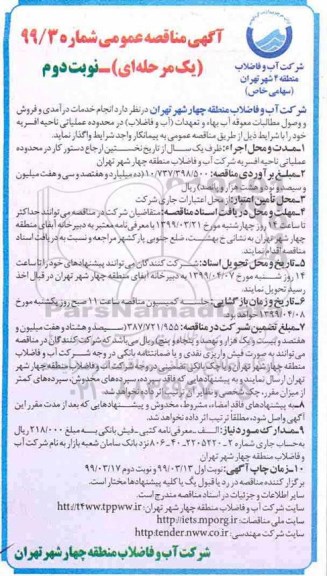 آگهی مناقصه عمومی شماره ۹۹/۳
(یک مرحله‌ای)_نوبت دوم
شرکت آب و فاضلاب
منطقه ۴ شهر تهران
(سهامی خاص)
شرکت آب و فاضلاب منطقه چهار شهر تهران در نظر دارد انجام خدمات درآمدی و فروش
و وصول مطالبات معوقه آب بهاء و تعهدات (آب و فاضلاب) در محدوده عملیاتی ناحیه افسریه
خود را با شرایط ذیل از طریق مناقصه عمومی به پیمانکار واجد شرایط واگذار نماید.
۱_مدت و محل اجراء: ظرف یک سال از تاریخ نخستین ارجاع دستور کار در محدوده
عملیاتی ناحیه افسریه شرکت آب و فاضلاب منطقه چهار شهر تهران
۲_مبلغ برآوردی مناقصه: ۱۰/۷۳۷/۳۹۸/۵۰۰ (ده میلیارد و هفتصد و سی و هفت میلیون
و سیصد و نود و هشت هزار و پانصد) ریال
۳_محل تأمین اعتبار: از محل اعتبارات جاری شرکت
۴_مهلت و محل دریافت اسناد مناقصه: متقاضیان شرکت در مناقصه می‌توانند حداکثر
تا ساعت ۱۴ روز چهارشنبه مورخ ۱۳۹۹/۰۳/۲۱ با معرفی‌نامه معتبر به دبیرخانه آبفای منطقه
چهار شهر تهران به نشانی خ بهشت، ضلع جنوبی پارکشهر مراجعه و نسبت به دریافت اسناد
مناقصه اقدام نمایند.
۵_تاریخ و محل تحویل اسناد: شرکت کنندگان می‌توانند پیشنهادهای خود را تا ساعت
۱۴ روز شنبه مورخ ۱۳۹۹/۰۴/۰۷ به دبیرخانه آبفای منطقه چهار شهر تهران در قبال اخذ
رسید تحویل نمایند.
۶_تاریخ و زمان بازگشایی: جلسه کمیسیون مناقصه ساعت ۱۱ صبح روز یکشنبه مورخ
۱۳۹۹/۰۴/۰۸ خواهد بود.
۷_مبلغ تضمین شرکت در مناقصه: ۳۸۷/۷۲۱/۹۵۵ (سیصد و هشتاد و هفت میلیون و
هفتصد و بیست و یک هزار و نهصد و پنجاه و پنج) ریال می‌باشد که شرکت کنندگان در مناقصه
می‌توانند به صورت فیش واریزی نقدی و یا ضمانتنامه بانکی در وجه شرکت آب و فاضلاب
منطقه چهار شهر تهران و یا چک بانکی تضمینی در وجه شرکت آب و فاضلاب منطقه چهار شهر
تهران ارسال نمایند و به پیشنهادهایی که فاقد سپرده، سپرده‌های مخدوش، سپرده‌های کمتر
از میزان مقرر، چک شخصی و نظایر آن ترتیب اثر داده نخواهد شد.
۸_به پیشنهادهای فاقد امضاء، مشروط، مخدوش و پیشنهادهایی که بعد از مدت مقرر این
آگهی واصل شود، مطلقاً ترتیب اثر داده نخواهد شد.
۹_مدارک مورد نیاز: الف_معرفی‌نامه کتبی ب_فیش بانکی به مبلغ ۲۱۸/۰۰۰ ریال
به حساب جاری شماره ۲_۲۲۰۵۲۲۰_۴۰_۸۰۶ نزد بانک سامان شعبه بازار به نام شرکت آب
و فاضلاب منطقه چهار شهر تهران
۱۰_زمان چاپ آگهی: نوبت اول ۹۹/۰۳/۱۳ و نوبت دوم ۹۹/۰۳/۱۷
برگزار کننده مناقصه در رد یا قبول یک یا کلیه پیشنهادها مختار است.
سایر اطلاعات و جزئیات در اسناد مناقصه مندرج است.
سایت شرکت آب و فاضلاب منطقه چهار شهر تهران: htt://t4ww.tppww.ir
سایت ملی مناقصات: http://iets.mporg.ir
سایت شرکت مهندسی: http:tender.nww.co.ir
شرکت آب و فاضلاب منطقه چهار شهر تهران